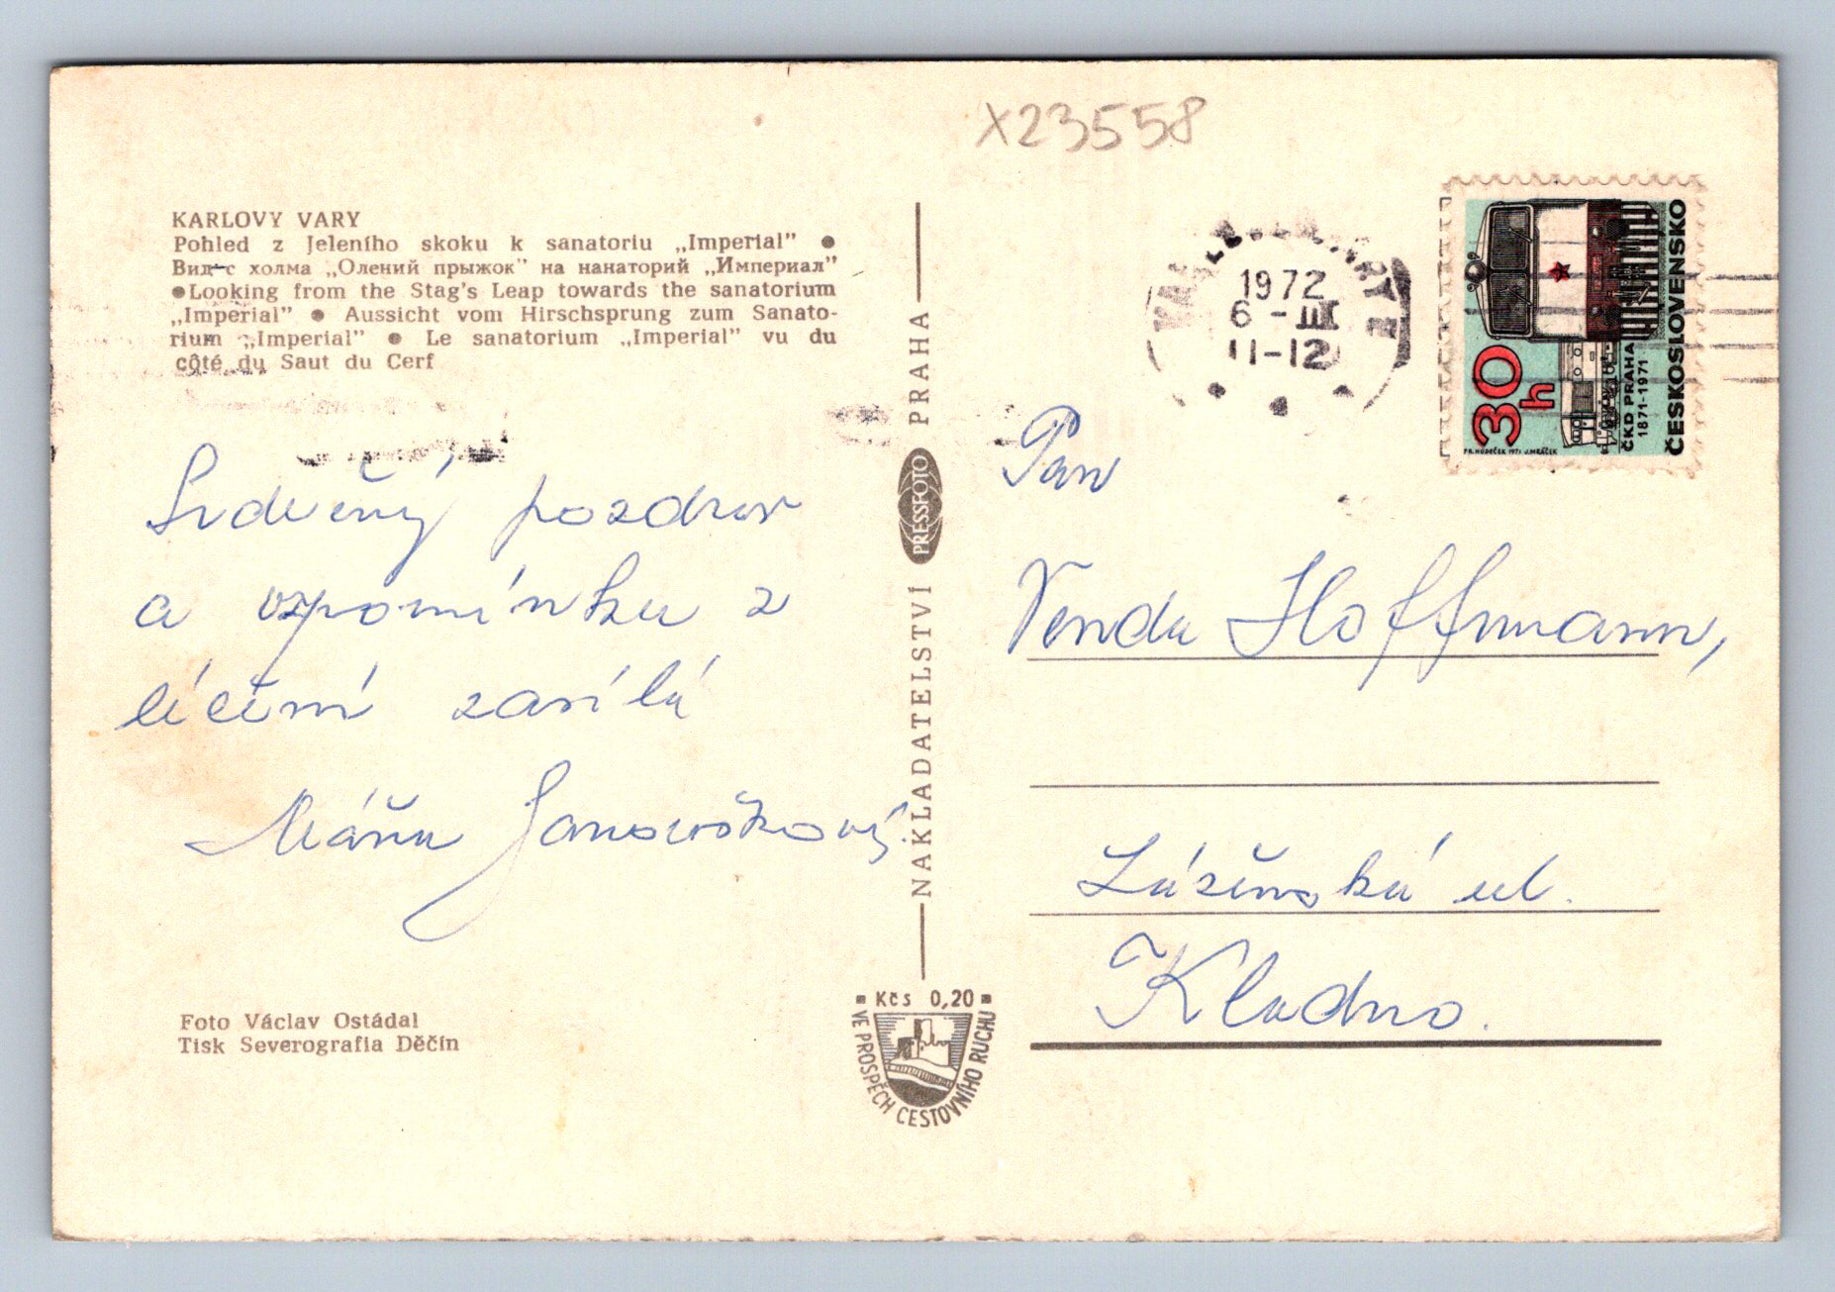 X23558
KARLOVY VARY
Pohled z Jeleního skoku k sanatoriu „Imperial" ●
Вид с холма „Олений прыжок" на нанаторий „Империал"
●Looking from the Stag's Leap towards the sanatorium
„Imperial" ● Aussicht vom Hirschsprung zum Sanato-
rium „Imperial" ● Le sanatorium „Imperial" vu du
côté du Saut du Cerf
Srdečný pozdrav
a vzpomínku z
léčení zasílá
Máňa Janoušková.
Foto Václav Ostádal
Tisk Severografia Děčín
NAKLADATELSTVÍ PRESSFOTO PRAHA
Kčs 0,20
VE PROSPĚCH CESTOVNÍHO RUCHU
KARLOVY VARY
1972
6 -III
11-12
30h
ČKD PRAHA
1871-1971
ČESKOSLOVENSKO
FR. HUDEČEK 1971 J. MRÁČEK
Pan
Venda Hoffmann,
Lázeňská ul.
Kladno.